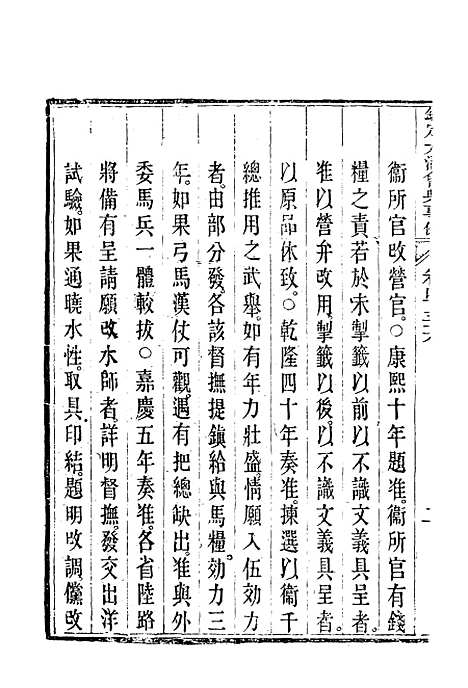 衞所官改營官。○康熙十年題准。衞所官有錢
糧之責若於未掣籤以前以不識文義具呈者。
准以營弁改用。掣籤以後。以不識文義具呈者。
以原品休致。○乾隆四十年奏准。揀選以衞千
總推用之武舉。如有年力壯盛。情願入伍効力
者。由部分發。各該督撫提鎭給與馬糧。効力三
年。如果弓馬漢仗可觀。遇有把總缺出。准與外
委馬兵一體較拔○嘉慶五年奏准。各省陸路
將備有呈請願改水師者。詳明督撫。發交出洋
試驗。如果通曉水性。取具印結。題明改調。儻改